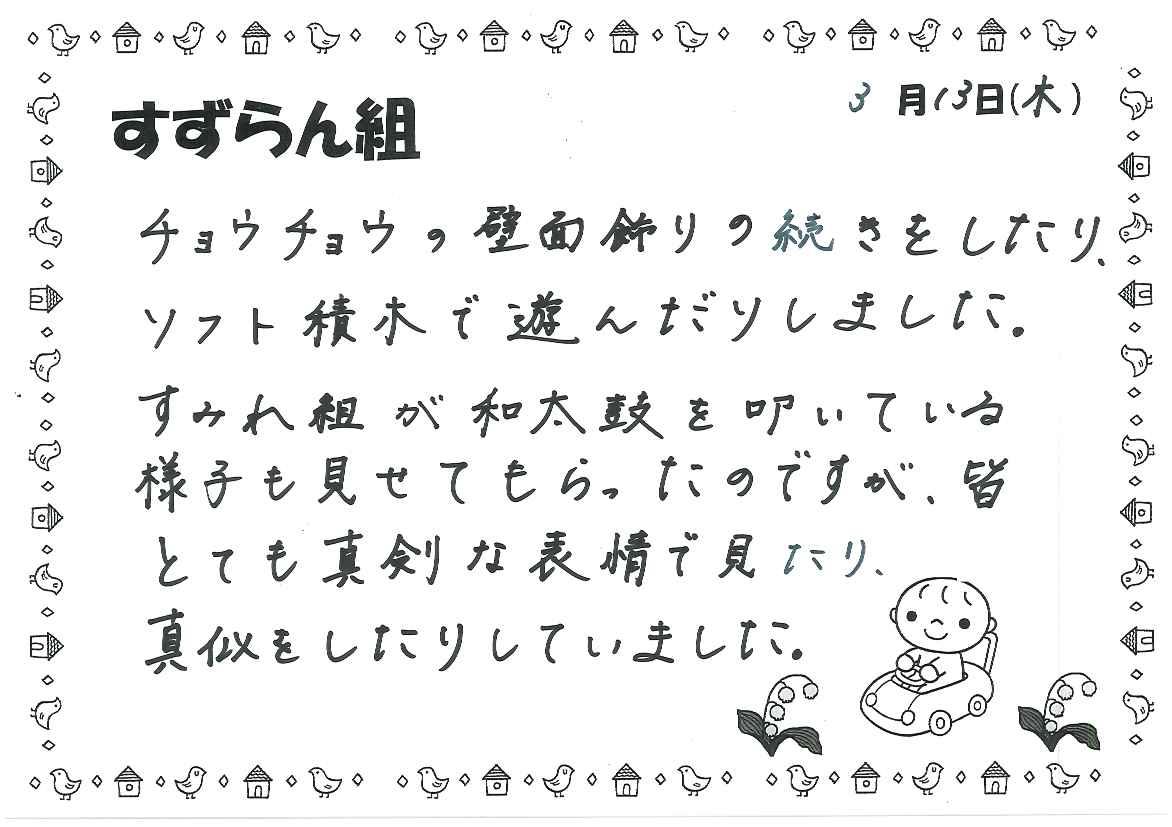 3月13日(木)
すずらん組
チョウチョウの壁面飾りの続きをしたり、
ソフト積木で遊んだりしました。
すみれ組が和太鼓を叩いている
様子も見せてもらったのですが、皆
とても真剣な表情で見たり、
真似をしたりしていました。